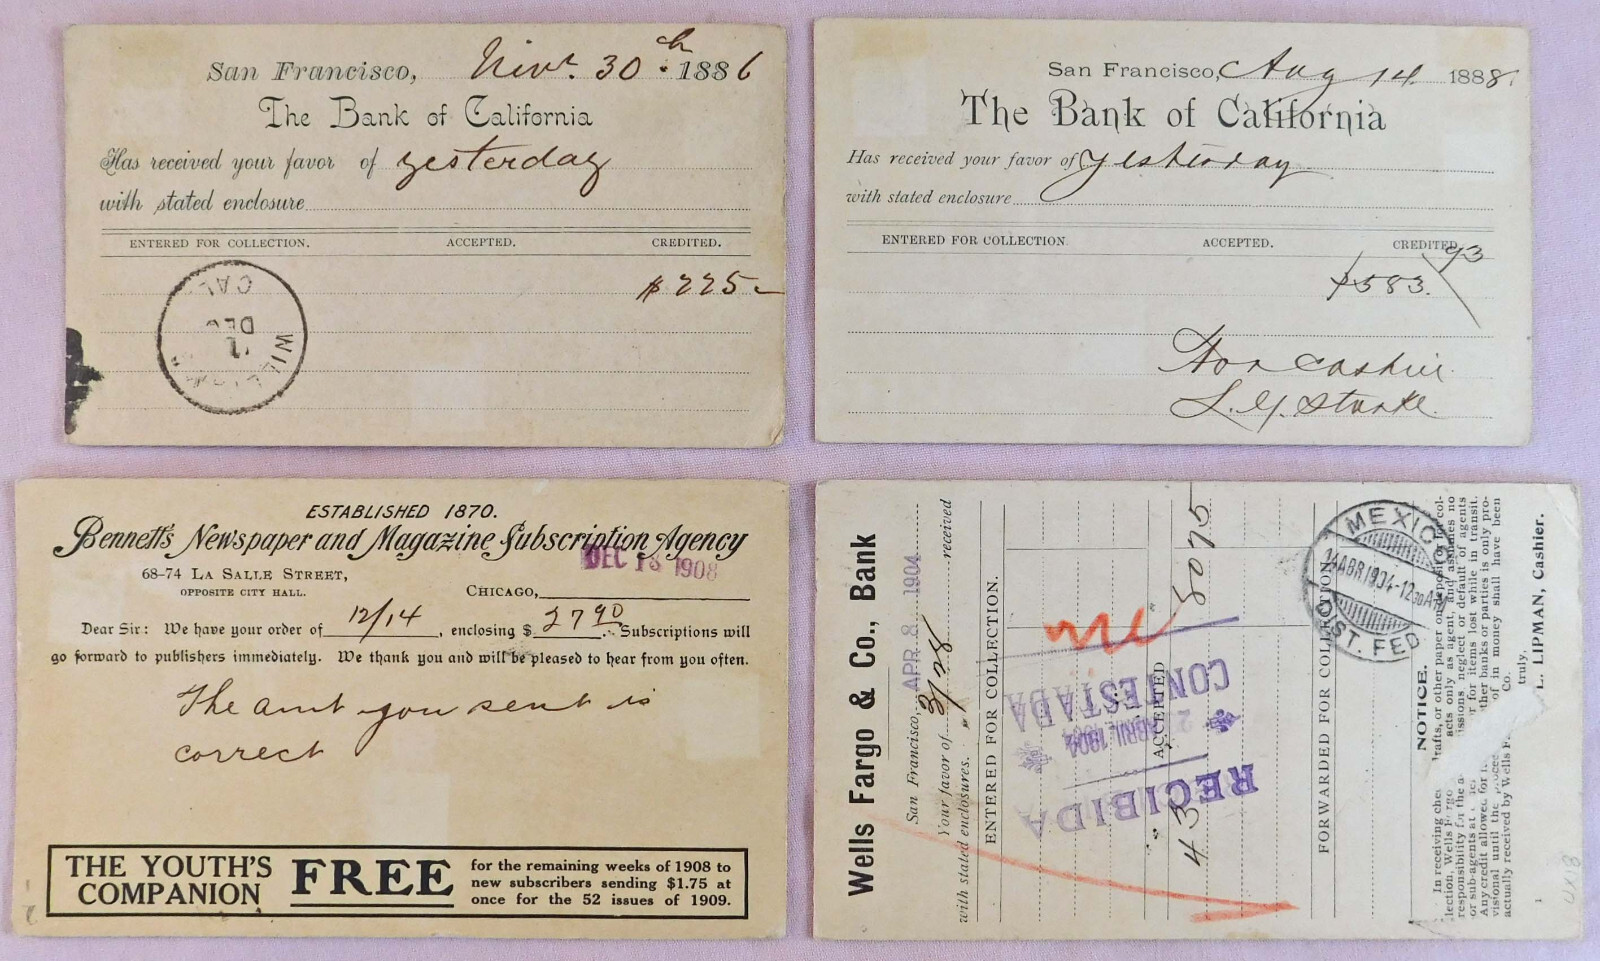 San Francisco, Nov. 30th 1886
The Bank of California
Has received your favor of yesterday
with stated enclosure
ENTERED FOR COLLECTION. ACCEPTED. CREDITED.
$225-
CAL
DEC
1
WILL
San Francisco, Aug 14 1888.
The Bank of California
Has received your favor of yesterday
with stated enclosure
ENTERED FOR COLLECTION ACCEPTED. CREDITED
$583. 93
Cashier
ESTABLISHED 1870.
Bennett's Newspaper and Magazine Subscription Agency
68-74 LA SALLE STREET,
OPPOSITE CITY HALL.
CHICAGO, DEC 15 1908
Dear Sir: We have your order of 12/14, enclosing $ 27 90. Subscriptions will
go forward to publishers immediately. We thank you and will be pleased to hear from you often.
The amt you sent is
correct
THE YOUTH'S
COMPANION
FREE
for the remaining weeks of 1908 to
new subscribers sending $1.75 at
once for the 52 issues of 1909.
Wells Fargo & Co., Bank
San Francisco, APR 8 1904
Your favor of 3/28 received
with stated enclosures.
ENTERED FOR COLLECTION.
ACCEPTED
43 5075
RECIBIDA
ABRIL 1904
CONTESTADA
FORWARDED FOR COLLECTION.
MEXICO
14 ABR 1904-12
DIST. FED
NOTICE.
In receiving drafts, or other paper on deposit or for col-
lection, Wells Fargo acts only as agent, and assumes no
responsibility for the neglect or default of agents
or sub-agents for items lost while in transit.
Any credit allowed for other banks or parties is only pro-
visional until the of in money shall have been
actually received by Wells Co.
truly,
L. LIPMAN, Cashier.
1
UX18